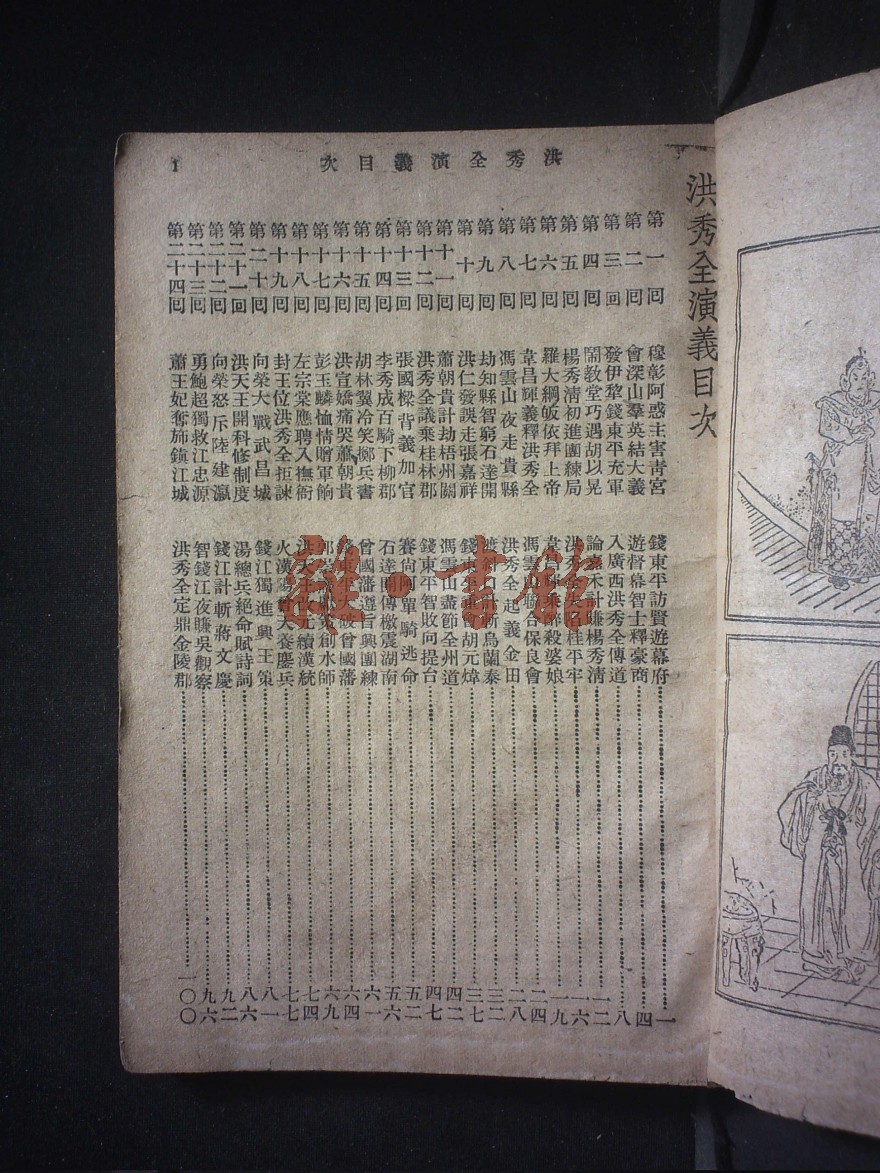 洪秀全演義目次
1
洪秀全演義目次
第一回 穆彰阿惑主害青宮 錢東平訪賢遊幕府 一
第二回 會深山羣英結大義 遊督幕智士釋豪商 四
第三回 發伊犂錢東平充軍 入廣西洪秀全傳道 八
第四回 鬧教堂巧遇胡以晃 論嘉禾計賺楊秀清 一二
第五回 楊秀清初進團練局 洪秀全失陷桂平牢 一六
第六回 羅大綱皈依拜上帝 韋昌輝乘醉殺婆娘 一九
第七回 韋昌輝義釋洪秀全 馮雲山聯合保良會 二四
第八回 馮雲山夜走貴縣 洪秀全起義金田 二八
第九回 劫知縣智窮石達開 渡口計斬烏蘭泰 三二
第十回 洪仁發誤走張嘉祥 錢東平胡元煒 三七
第十一回 蕭朝貴計劫梧州關 馮雲山盡節全州道 四二
第十二回 洪秀全議棄桂林郡 錢東平智敗向提台 四七
第十三回 張國樑背義加官 賽尚阿單騎逃命 五二
第十四回 李秀成百騎下柳郡 石達開傳檄震湖南 五六
第十五回 胡林翼冷笑擲兵書 曾國藩遵旨興團練 六一
第十六回 洪宣嬌痛哭蕭朝貴 錢東平大破曾國藩 六四
第十七回 彭玉麟恤情贈軍餉 郭嵩燾獻策創水師 六九
第十八回 左宗棠應聘入撫衙 洪天王改元續漢統 七四
第十九回 封王位洪秀全拒諫 火漢陽曾天養鏖兵 七七
第二十回 向榮大戰武昌城 錢江獨進興王策 八一
第二十一回 洪天王開科修制度 湯總兵絕命賦詩詞 八六
第二十二回 向榮怒斥陸建瀛 錢江計斬蔣文慶 九二
第二十三回 勇鮑超獨救江忠源 智錢江夜賺吳觀察 九六
第二十四回 蕭王妃奪旆鎮江城 洪秀全定鼎金陵郡 一〇〇
雜·書館